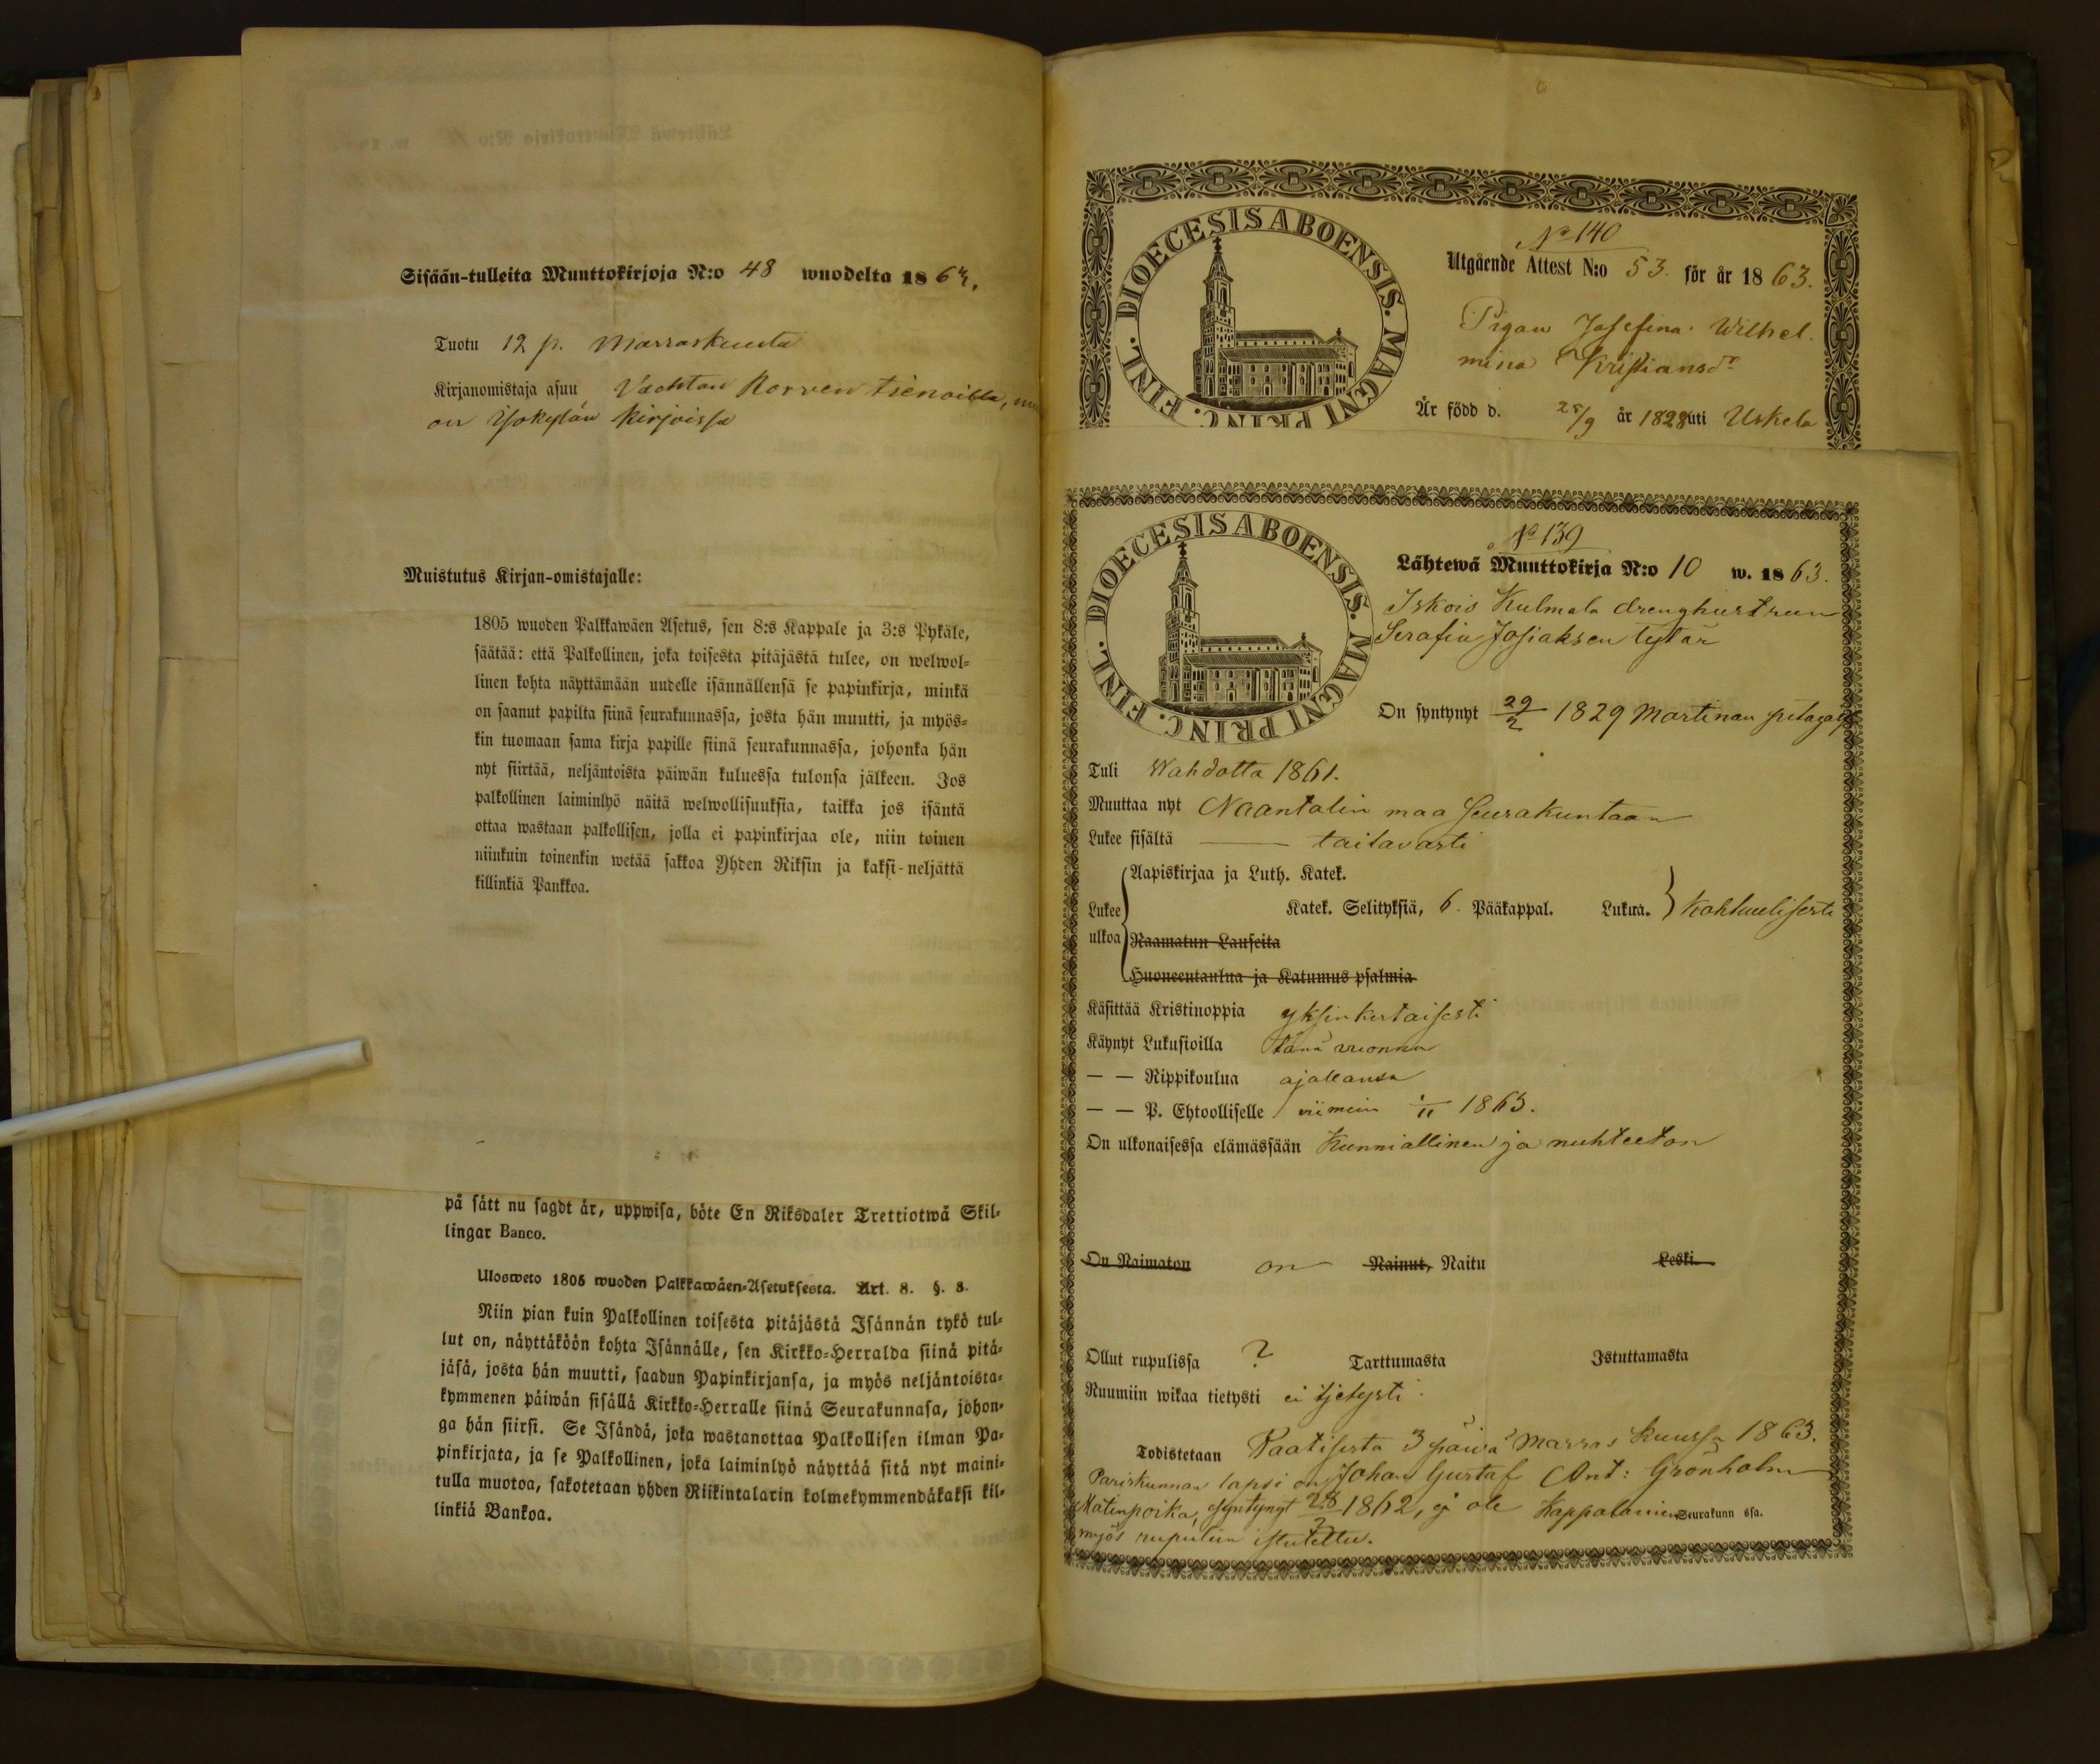 Sisään-tulleita Muuttokirjoja N:o 48 wuodelta 1863,
Tuotu 12 p. Marraskuuta
Kirjanomistaja asuu Vachtan Korven tienoilla,
on Isokylän Kirjoissa
Muistutus Kirjan-omistajalle:
1805 wuoden Palkkawäen Asetus, sen 8:s Kappale ja 3:s Pykäle,
säätää: että Palkollinen, joka toisesta pitäjästä tulee, on welwol-
linen kohta näyttämään uudelle isännällensä se papinkirja, minkä
on saanut papilta siinä seurakunnassa, josta hän muutti, ja myös-
kin tuomaan sama kirja papille siinä seurakunnassa, johonka hän
nyt siirtää, neljäntoista päiwän kuluessa tulonsa jälkeen. Jos
palkollinen laiminlyö näitä welwollisuuksia, taikka jos isäntä
ottaa wastaan palkollisen, jolla ei papinkirjaa ole, niin toinen
niinkuin toinenkin wetää sakkoa Yhden Riksin ja kaksi-neljättä
killinkiä Pankkoa.
på sått nu sagdt år, uppwisa, böte En Riksdaler Trettiotwå Skil-
lingar Banco.
Ulosweto 1805 wuoden Palkkawåen-Asetuksesta. Art. 8. §. 3.
Niin pian kuin Palkollinen toisesta pitåjåstå Isånnån tykö tul-
lut on, nåyttåköön kohta Isånnålle, sen Kirkko-Herralda siinå pitå-
jåså, josta hån muutti, saadun Papinkirjansa, ja myös neljåntoista-
kymmenen påiwån sisållå Kirkko-Herralle siinå Seurakunnasa, johon-
ga hån siirsi. Se Isåndå, joka wastanottaa Palkollisen ilman Pa-
pinkirjata, ja se Palkollinen, joka laiminlyö nåyttåå sitå nyt maini-
tulla muotoa, sakotetaan yhden Riikintalarin kolmekymmendåkaksi kil-
linkiå Bankoa.
DIOECESIS ABOENSIS. MAGNI PRINC. FINL.
No 140
Utgående Attest N:o 53. för år 1863.
Pigan Josefina Wilhel.
mina Kristiansdr
Är född d. 25/9 år 1828 uti Uskela
DIOECESIS ABOENSIS. MAGNI PRINC. FINL.
No 139
Lähtewä Muuttokirja N:o 10 w. 1863.
Iskois Kulmala drenghustrun
Serafia Josiaksen tytär
On syntynyt 29/2 1829 Martinan
Tuli Wahdolta 1861.
Muuttaa nyt Naantalin maa Seurakuntaan
Lukee sisältä — taitavasti
Aapiskirjaa ja Luth. Katek.
Lukee ulkoa Katek. Selityksiä, 6. Pääkappal. Lukua. Kohtuulisesti
Raamatun Lauseita
Huoneentaulua ja Katumus psalmia
Käsittää Kristinoppia yksinkertaisesti
Käynyt Lukusioilla tänä vuonna
— — Rippikoulua ajallansa
— — P. Ehtoolliselle viimein 1/11 1863.
On ulkonaisessa elämässään Kunniallinen ja nuhteeton
On Naimaton on Nainut, Naitu Leski
Ollut rupulissa ? Tarttumasta Istuttamasta
Ruumiin wikaa tietysti ei tjetysti.
Todistetaan Raatisista 3 päivä Marras kuussa 1863.
Pariskunnan lapsi on Johan Gustaf Ant: Grönholm
Matinpoika, syntynyt 1862, ej ole Kappalainen Seurakunn ssa.
myös rupuliin istutettu.